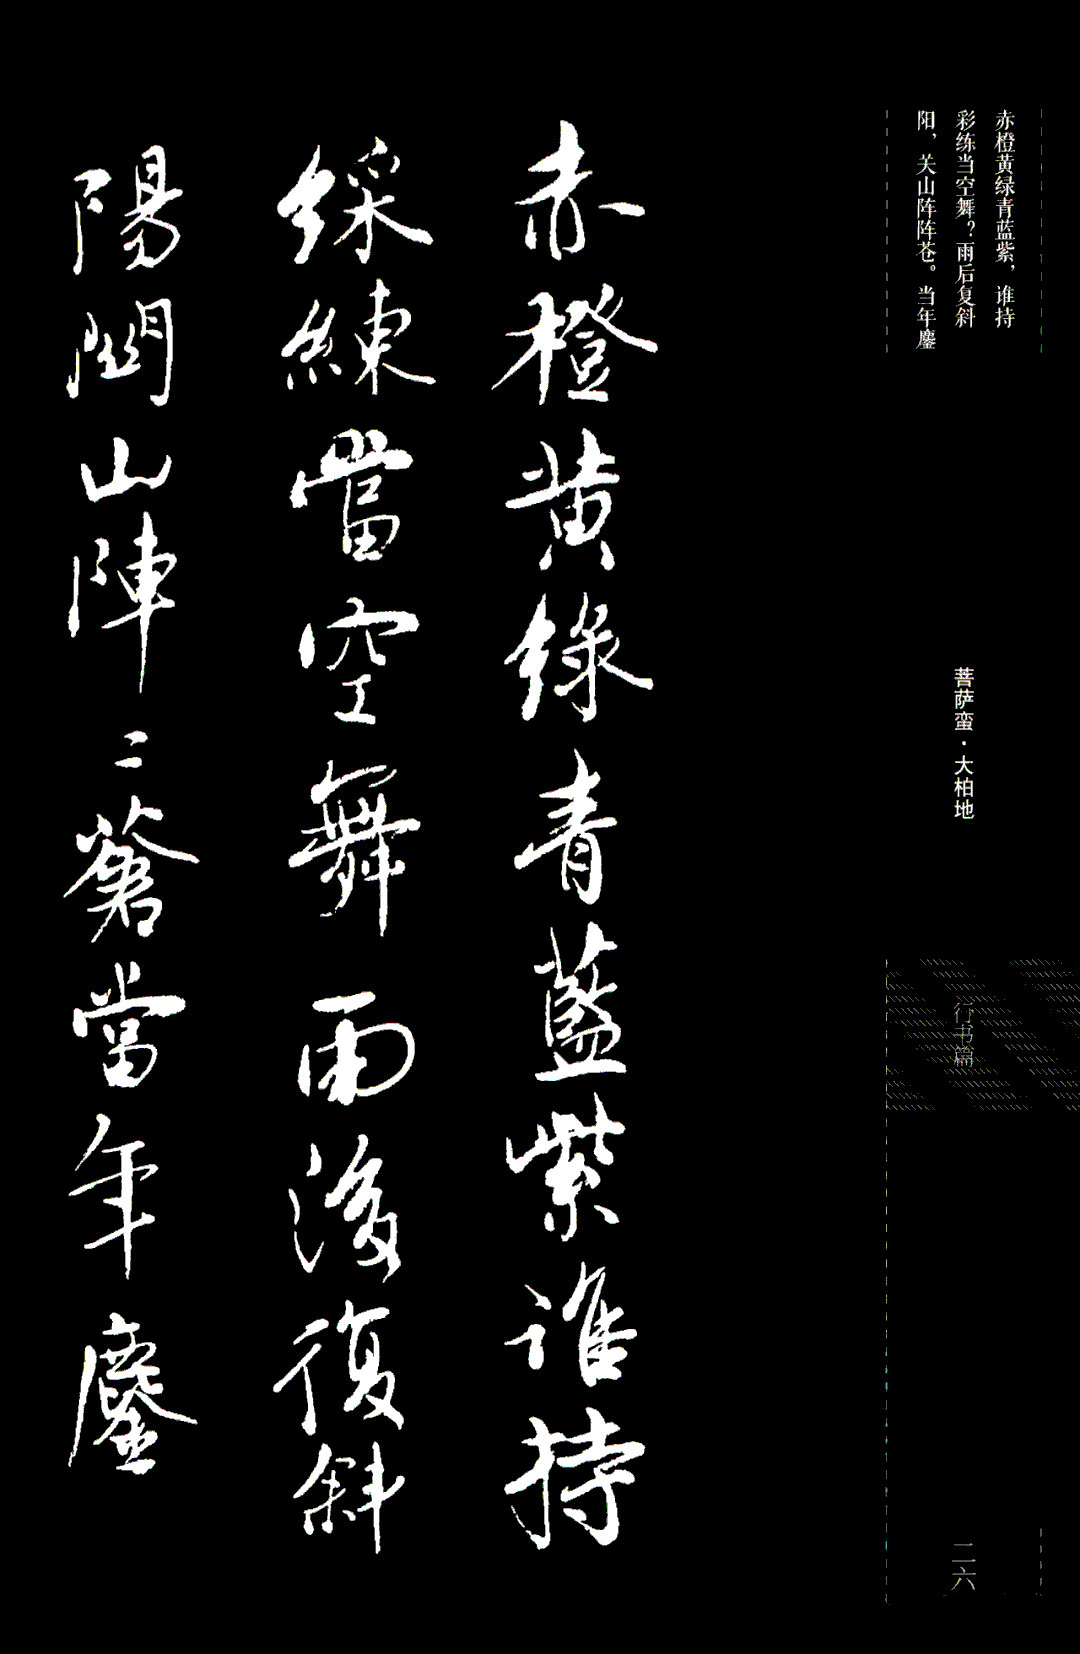 赤橙黄绿青蓝紫，谁持
彩练当空舞？雨后复斜
阳，关山阵阵苍。当年鏖
菩萨蛮·大柏地
行书篇
二六
赤橙黄綠青藍紫誰持
綵練當空舞雨後復斜
陽關山陣二蒼當年鏖